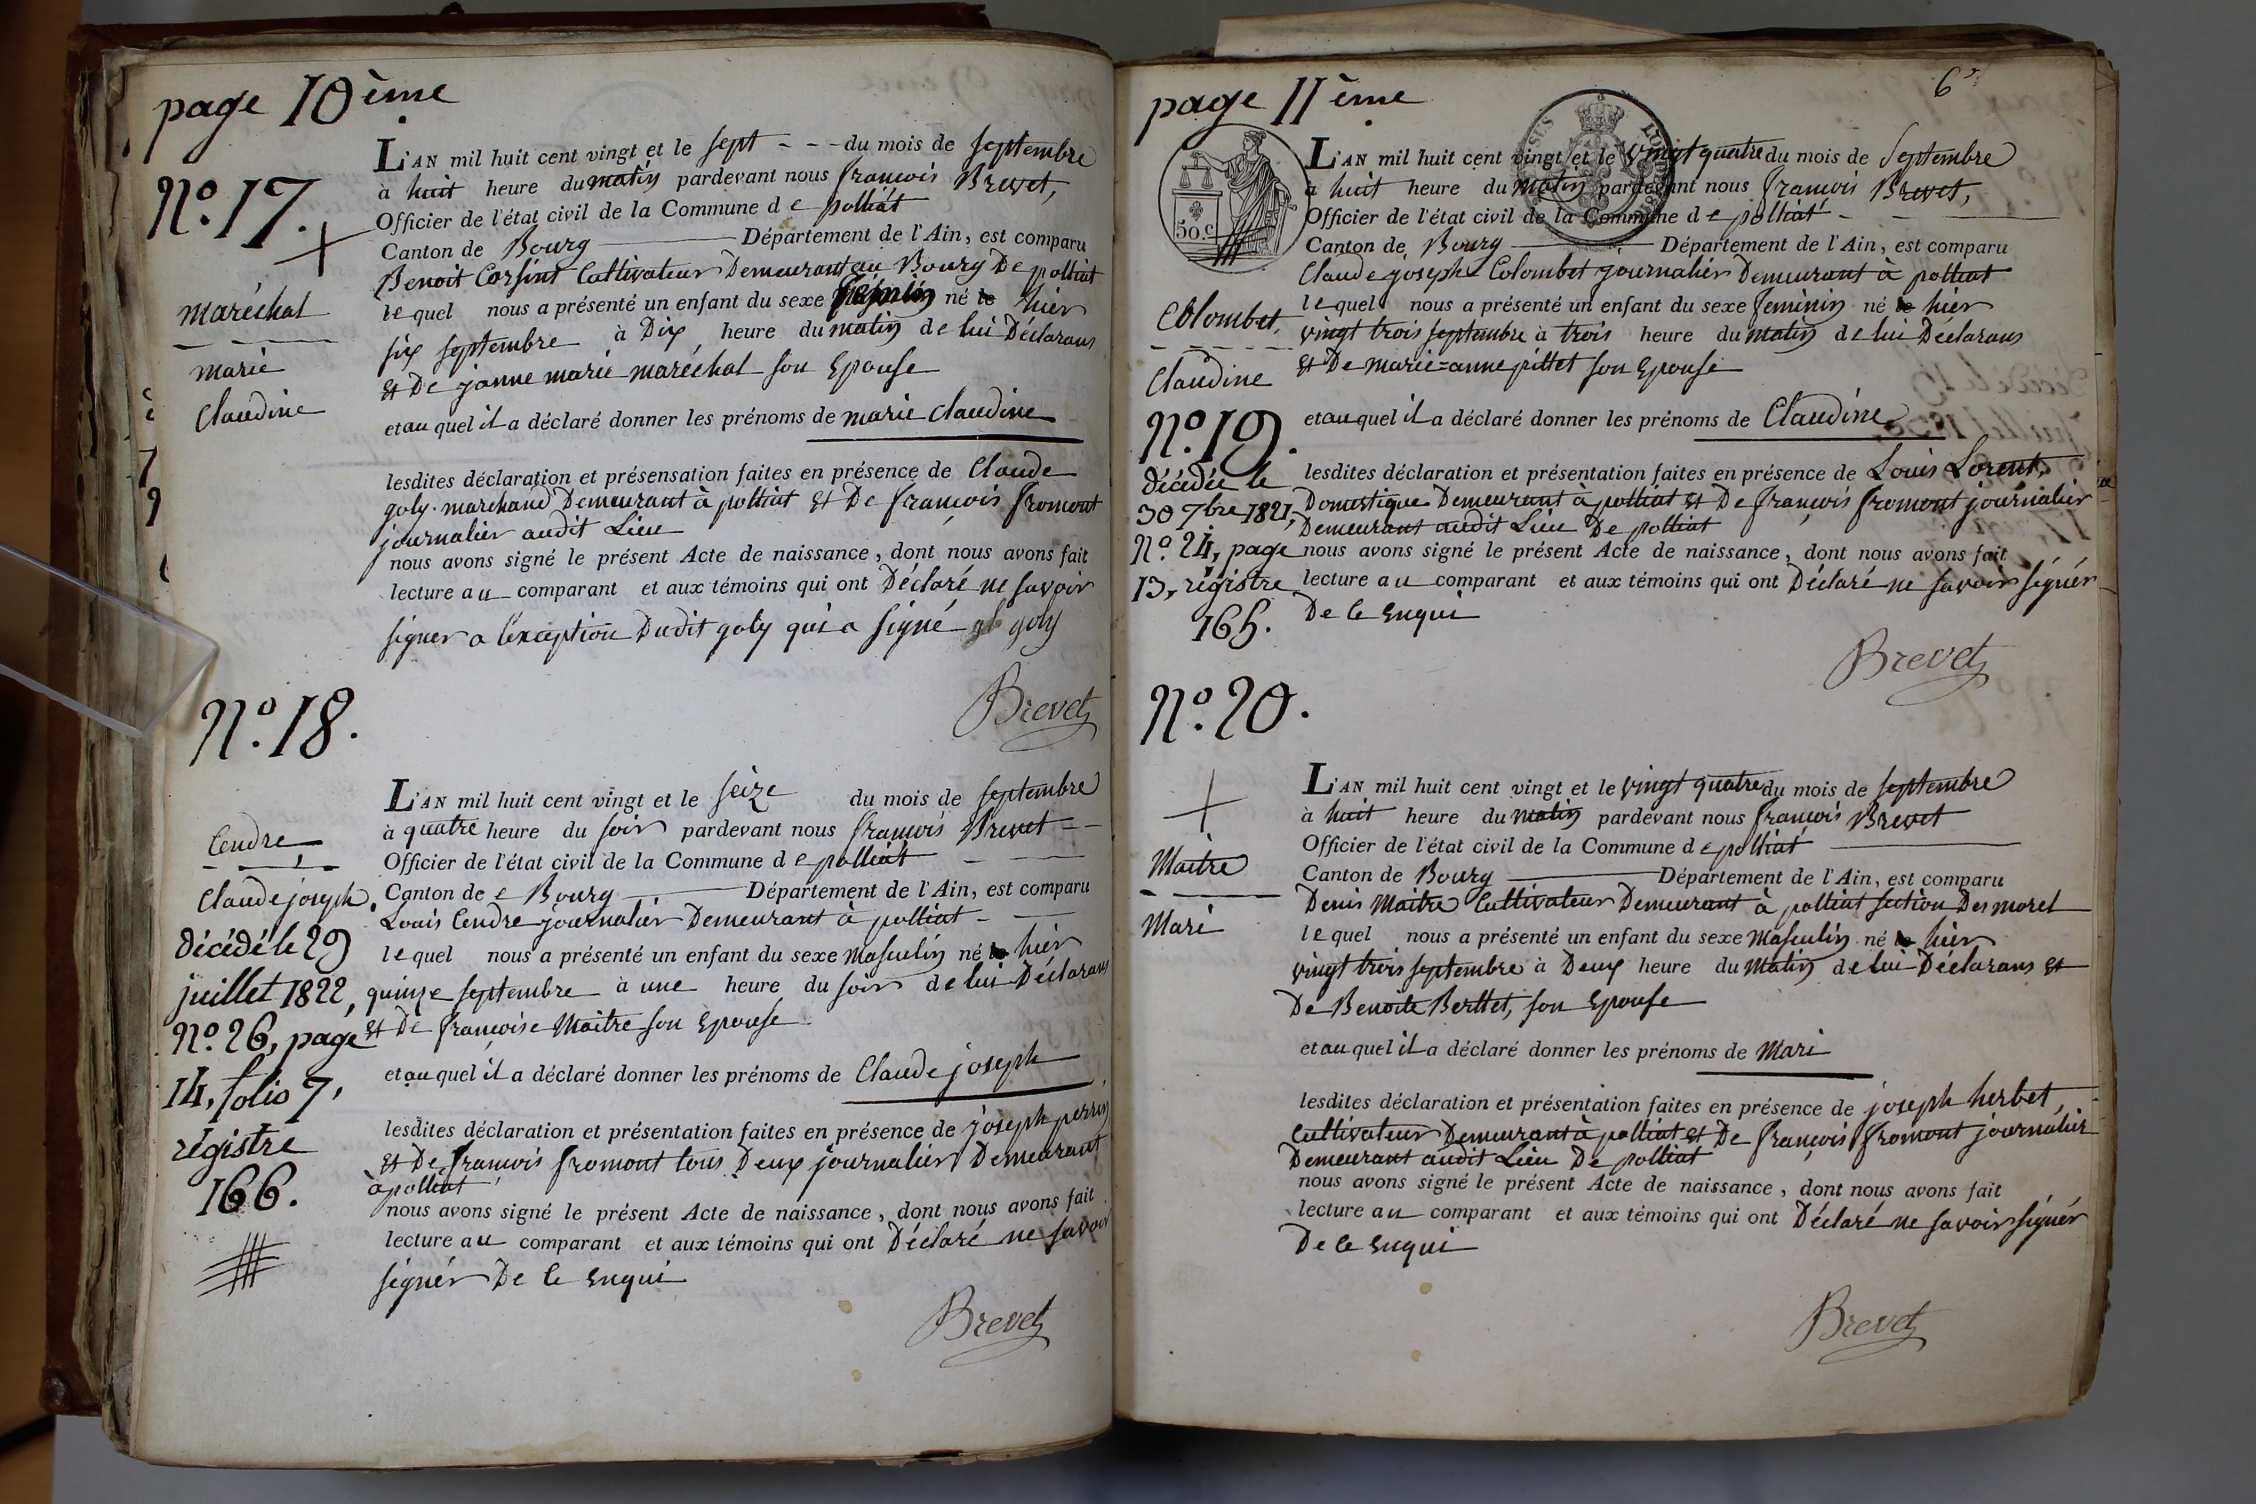 page 10ème
N°. 17.
maréchal
marie
Claudine
L'AN mil huit cent vingt et le sept - - - du mois de septembre
à huit heure du matin pardevant nous françois Brevet,
Officier de l'état civil de la Commune de polliat
Canton de Bourg Département de l'Ain, est comparu
Benoit Corsint Cultivateur Demeurant au Bourg De polliat
lequel nous a présenté un enfant du sexe féminin né le hier
six septembre à Dix heure du matin de lui Déclarans
Et De janne marie maréchal son Epouse
et au quel il a déclaré donner les prénoms de marie Claudine
lesdites déclaration et présensation faites en présence de Claude
goly. marchand Demeurant à polliat Et De françois fromont
journalier audit Lieu
nous avons signé le présent Acte de naissance, dont nous avons fait
lecture au comparant et aux témoins qui ont Déclaré ne savoir
signer a l'exception Dudit goly qui a signé goly
Brevet
N°. 18.
Cendre
Claude joseph.
décédé le 29
juillet 1822,
N°. 26, page
14, folio 7,
régistre
166.
L'AN mil huit cent vingt et le seize du mois de septembre
à quatre heure du soir pardevant nous françois Brevet
Officier de l'état civil de la Commune de polliat
Canton de e Bourg Département de l'Ain, est comparu
Louis Cendre journalier Demeurant à polliat
lequel nous a présenté un enfant du sexe Masculin né le hier
quinze septembre à une heure du soir de lui Déclarans
Et De françoise Maitre son Epouse
et au quel il a déclaré donner les prénoms de Claude joseph
lesdites déclaration et présentation faites en présence de joseph perrin
Et De françois fromont tous Deux journalier Demeurant
à polliat
nous avons signé le présent Acte de naissance, dont nous avons fait
lecture au comparant et aux témoins qui ont Déclaré ne savoir
signér De Ce Enqui
Brevet
page 11ème
6
50. c.
Colombet,
Claudine
N°. 19.
décédée le
30 7bre 1821,
N°. 24, page
13, régistre
165.
L'AN mil huit cent vingt et le vingt quatre du mois de Septembre
à huit heure du matin pardevant nous françois Brevet,
Officier de l'état civil de la Commune de polliat
Canton de Bourg Département de l'Ain, est comparu
Claude joseph Colombet journalier Demeurant à polliat
lequel nous a présenté un enfant du sexe feminin né le hier
vingt trois septembre à trois heure du matin de lui Déclarans
Et De marie=anne pittet son Epouse
et au quel il a déclaré donner les prénoms de Claudine
lesdites déclaration et présentation faites en présence de Louis Lorent,
Domestique Demeurant à polliat Et De françois fromont journalier
Demeurant audit Lieu De polliat
nous avons signé le présent Acte de naissance, dont nous avons fait
lecture au comparant et aux témoins qui ont Déclaré ne savoir signér
De Ce Enqui
Brevet
N°. 20.
Maitre
Mari
L'AN mil huit cent vingt et le vingt quatre du mois de septembre
à huit heure du matin pardevant nous françois Brevet
Officier de l'état civil de la Commune de polliat
Canton de Bourg Département de l'Ain, est comparu
Denis Maitre Cultivateur Demeurant à polliat section Des morel
lequel nous a présenté un enfant du sexe Masculin né le hier
vingt trois septembre à Deux heure du Matin de lui Déclarans Et
De Benoite Berttet, son Epouse
et au quel il a déclaré donner les prénoms de Mari
lesdites déclaration et présentation faites en présence de joseph herbet,
Cultivateur Demeurant à polliat Et De françois fromont journalier
Demeurant audit Lieu De polliat
nous avons signé le présent Acte de naissance, dont nous avons fait
lecture au comparant et aux témoins qui ont Déclaré ne savoir signér
De Ce Enqui
Brevet